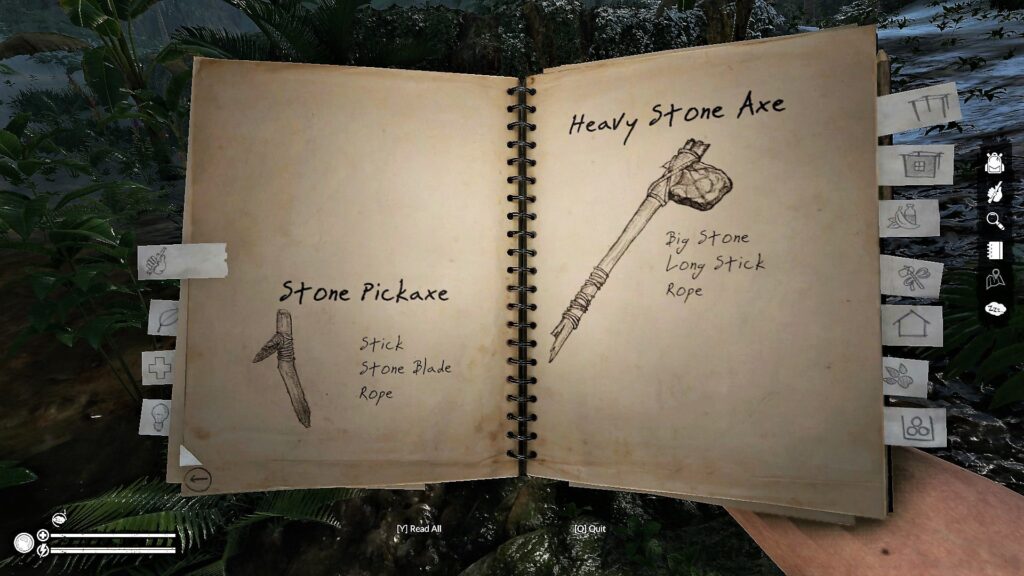 Stone Pickaxe
Stick
Stone Blade
Rope
Heavy Stone Axe
Big Stone
Long Stick
Rope
Zzz
[Y] Read All
[Q] Quit